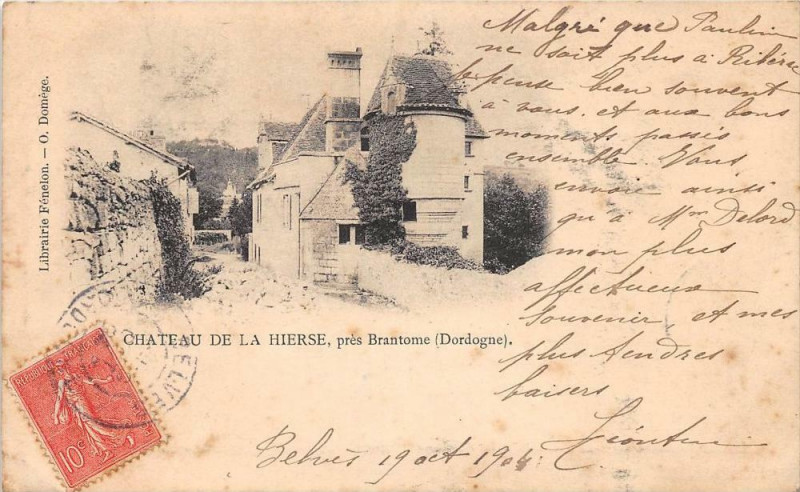 Malgré que Paulin
ne soit plus à Ribérac
je pense bien souvent
à vous, et aux bons
moments passés
ensemble. Vous
envoie ainsi
qu'à Mme Delord
mon plus
affectueux
souvenir, et mes
plus tendres
baisers
Léontine
Belvès 19 oct 1904
Librairie Fénelon. — O. Domège.
CHATEAU DE LA HIERSE, près Brantome (Dordogne).
10c